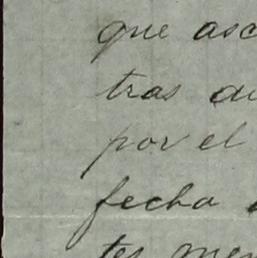 que asc
tras
por el
fecha
tes